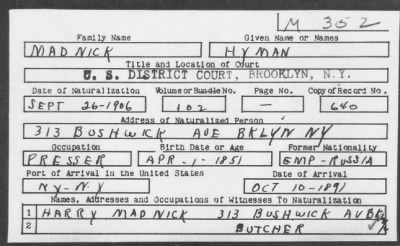 M 352
Family Name Given Name or Names
MADNICK HYMAN
Title and Location of Court
U. S. DISTRICT COURT, BROOKLYN, N.Y.
Date of Naturalization Volume or Bundle No. Page No. Copy of Record No.
SEPT 26-1906 102 — 640
Address of Naturalized Person
313 BUSHWICK AVE BKLYN NY
Occupation Birth Date or Age Former Nationality
PRESSER APR-1-1851 EMP-RUSSIA
Port of Arrival in the United States Date of Arrival
NY-NY OCT 10-1891
Names, Addresses and Occupations of Witnesses To Naturalization
1 HARRY MADNICK 313 BUSHWICK AV BKL
2 BUTCHER